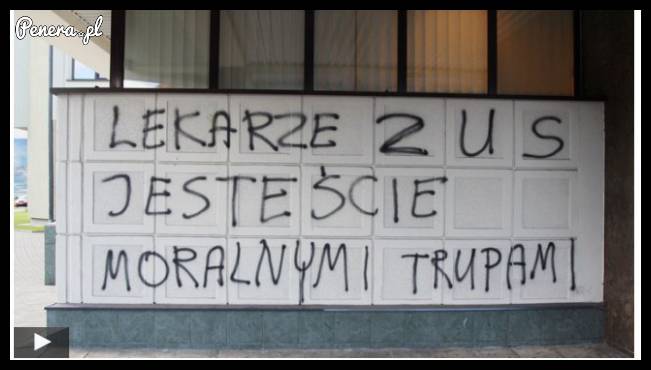 Penera.pl
LEKARZE ZUS
JESTEŚCIE
MORALNYMI TRUPAMI